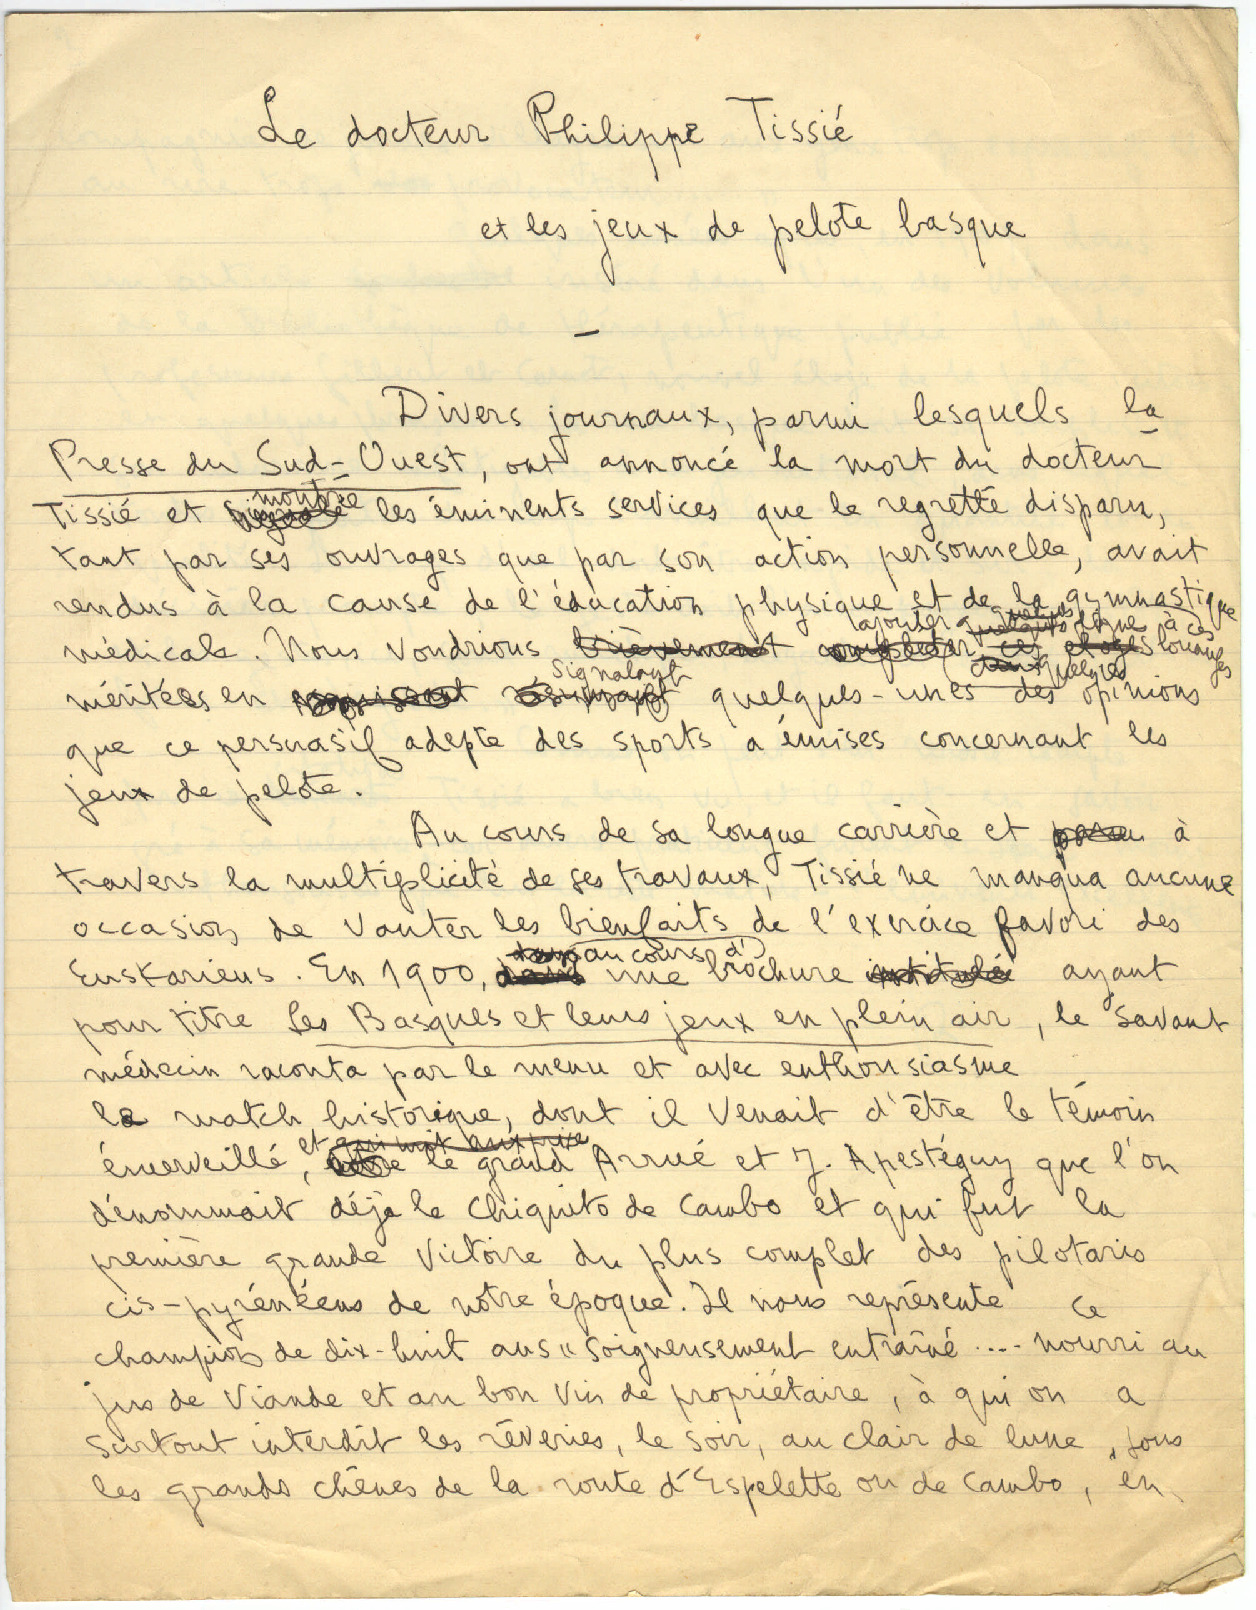 Le docteur Philippe Tissié
et les jeux de pelote basque
—
Divers journaux, parmi lesquels la
Presse du Sud-Ouest, ont annoncé la mort du docteur
Tissié et montré les éminents services que le regretté disparu,
tant par ses ouvrages que par son action personnelle, avait
rendus à la cause de l'éducation physique et de la gymnastique
ajouter quelques lignes à ces
médicale. Nous voudrions brièvement compléter ces éloges louanges
signalant
méritées en résumant quelques-unes des opinions
que ce persuasif adepte des sports a émises concernant les
jeux de pelote.
Au cours de sa longue carrière et à
travers la multiplicité de ses travaux, Tissié ne manqua aucune
occasion de vanter les bienfaits de l'exercice favori des
Euskariens. En 1900, dans au cours d'une brochure intitulée ayant
pour titre Les Basques et leurs jeux en plein air, le savant
médecin raconta par le menu et avec enthousiasme
le match historique, dont il venait d'être le témoin
et qui mit aux prises
émerveillé, entre le grand Arrué et J. Apestéguy que l'on
dénommait déjà le Chiquito de Cambo et qui fut la
première grande victoire du plus complet des pilotaris
cis-pyrénéens de notre époque. Il nous représente ce
champion de dix-huit ans "soigneusement entraîné .... nourri au
jus de viande et au bon vin de propriétaire, à qui on a
surtout interdit les rêveries, le soir, au clair de lune, sous
les grands chênes de la route d'Espelette ou de Cambo, en